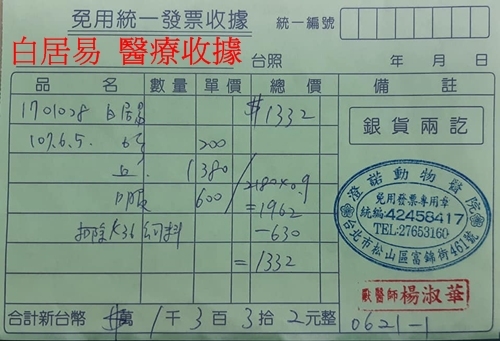 免用統一發票收據
統一編號
白居易 醫療收據
台照 年 月 日
品 名 數量 單價 總價 備 註
1701028 白居易 $1332
107.6.5. 200
1380 / 2180×0.9
口服 600 =1962
扣除K36飼料 -630
=1332
銀貨兩訖
澄諾動物醫院
免用發票專用章
統編:42458417
TEL:27653160
台北市松山區富錦街461號
獸醫師 楊淑華
合計新台幣 萬 1千3百3拾2元整
0621-1